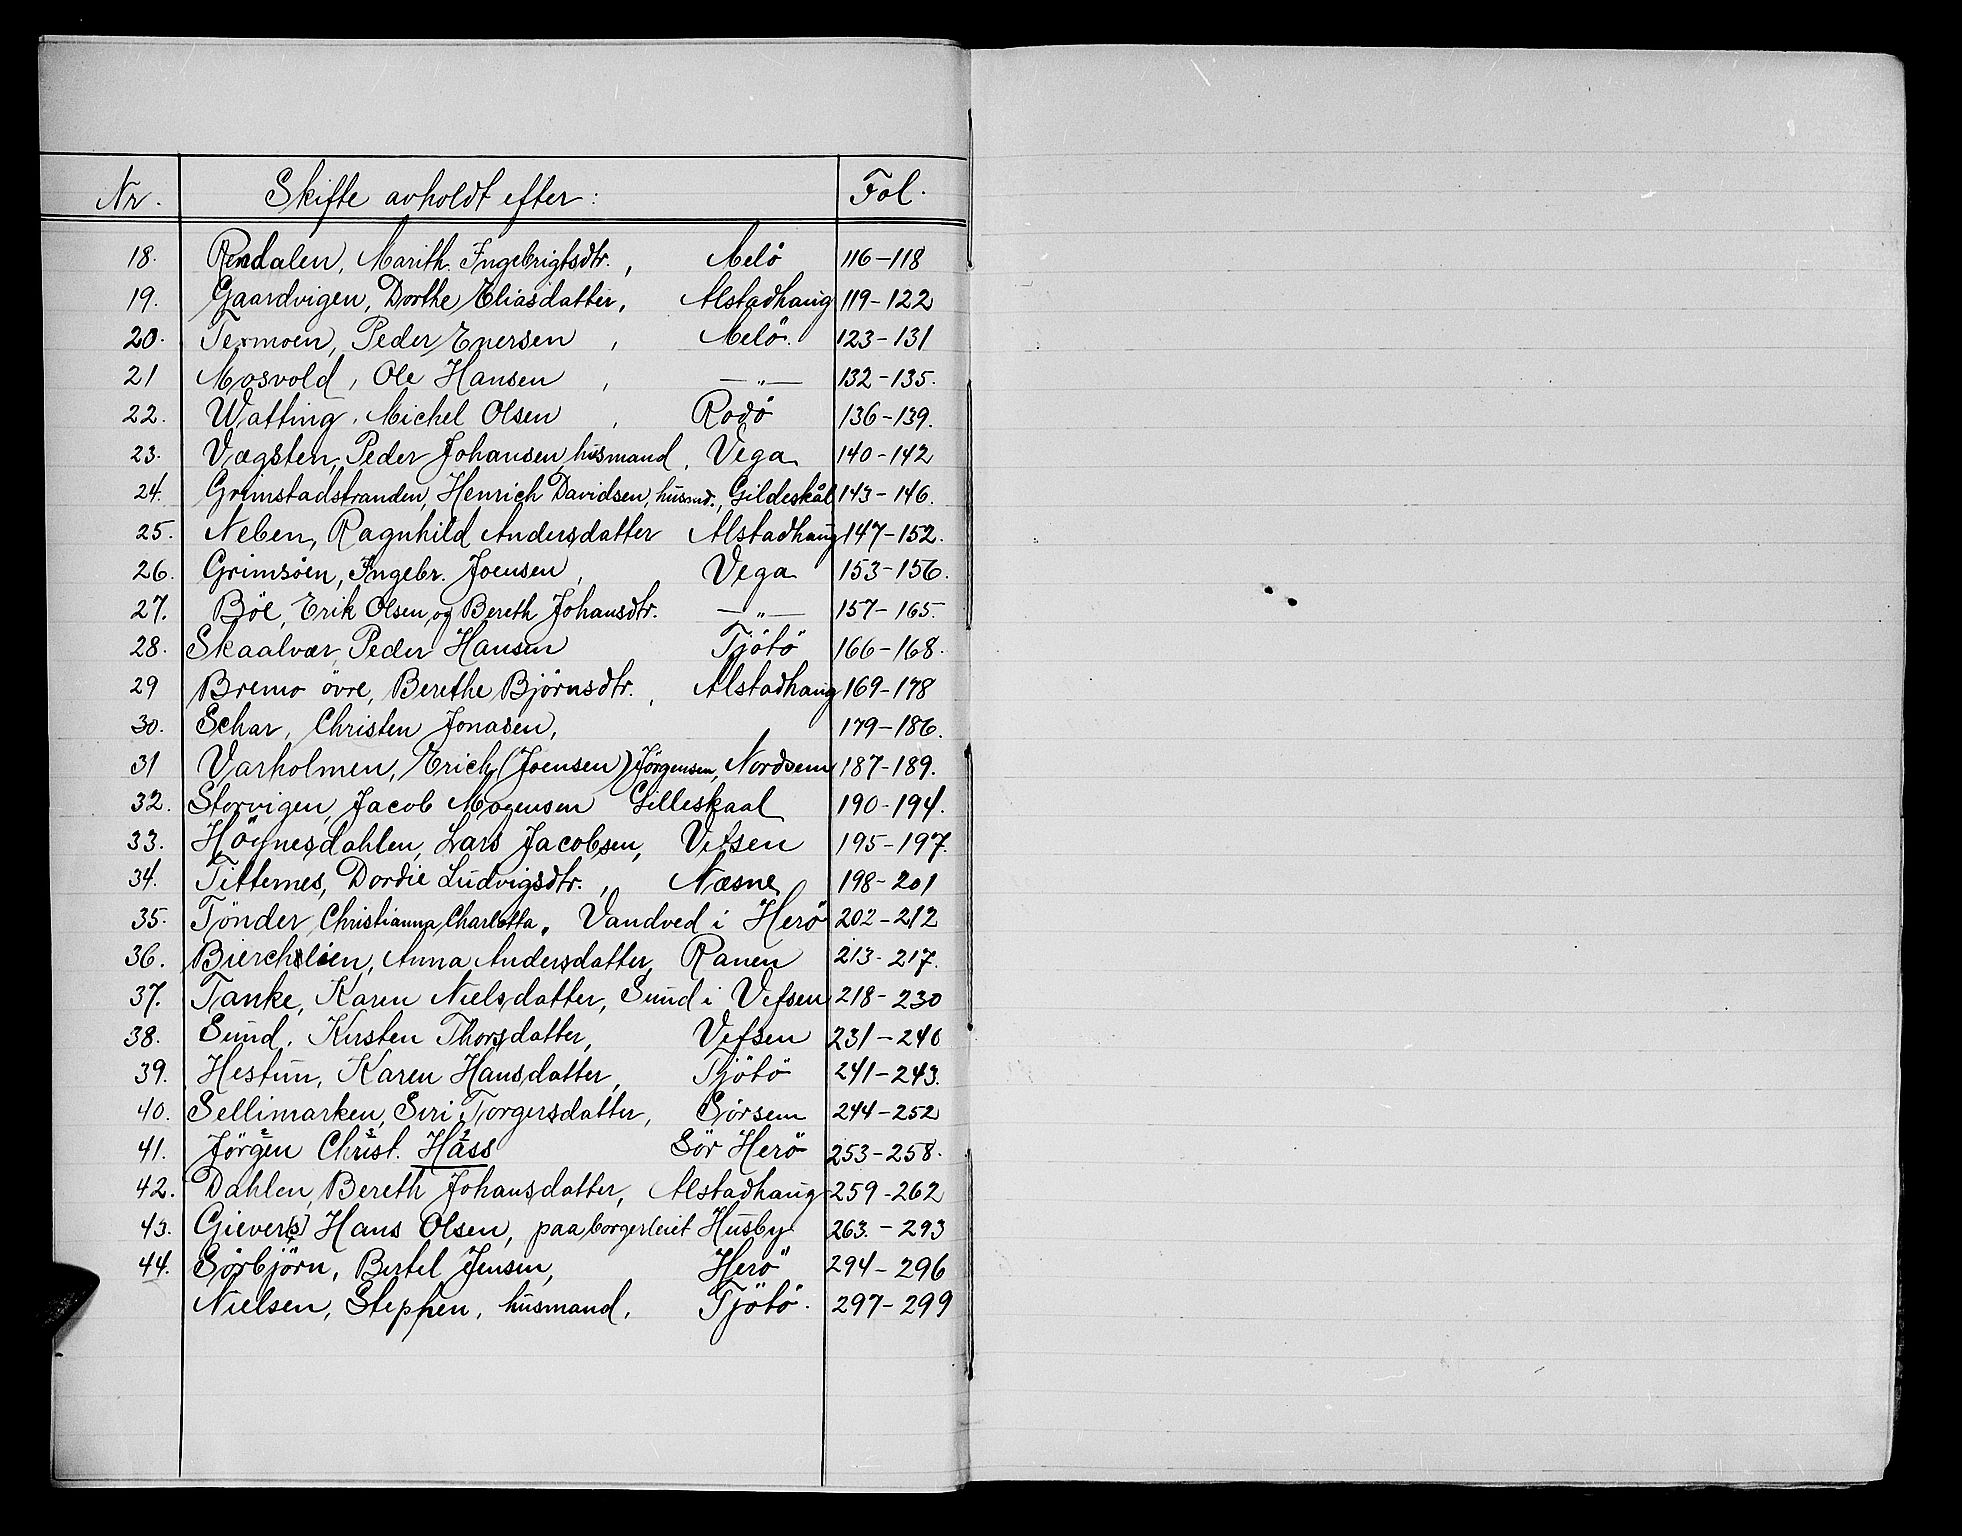 Nr. Skifte avholdt efter: Fol.
18. Rendalen, Marith. Ingebrigtsdtr., Melö 116-118
19. Gaardvigen, Dorthe Eliasdatter, Alstadhaug 119-122
20. Termoen, Peder Enersen, Melö. 123-131
21 Mosvold, Ole Hansen, —„— 132-135.
22. Watting, Michel Olsen, Rodö 136-139.
23. Vægsten, Peder Johansen, husmand, Vega 140-142
24. Grimstadstranden, Henrich Davidsen, husmd., Gildeskål 143-146.
25. Neben, Ragnhild Andersdatter Alstadhaug 147-152.
26. Grimsöen, Ingebr. Joensen, Vega 153-156.
27. Böe, Erik Olsen, og Bereth Johansdtr. —„— 157-165.
28. Skaalvær, Peder Hansen Tjötö 166-168.
29 Bremo övre, Berethe Björnsdtr., Alstadhaug 169-178
30. Schar, Christen Jonasen, 179-186.
31 Varholmen, Erich (Joensen) Jörgensen, Nordsem 187-189.
32. Storvigen, Jacob Mogensen Gilleskaal 190-194.
33. Högnesdahlen, Lars Jacobsen, Vefsen 195-197.
34. Titternes, Dordie Ludvigsdtr., Næsne 198-201
35. Tönder, Christianna Charlotta, Vandved i Herö 202-212
36. Bierchlien, Anna Andersdatter, Ranen 213-217.
37. Tanke, Karen Nielsdatter, Sund i Vefsen 218-230
38. Sund, Kirsten Thorsdatter, Vefsen 231-240
39. Hestun, Karen Hansdatter, Tjötö 241-243.
40. Sellimarken, Siri Torgersdatter, Sörsem 244-252
41. Jörgen Christ. Hass Sör Herö 253-258.
42. Dahlen, Bereth Johansdatter, Alstadhaug 259-262
43. Giever[s] Hans Olsen, paa borgerleiet Husby 263.-293
44. Sörbjörn, Bertel Jensen, Herö 294-296
Nielsen, Stephen, husmand, Tjötö. 297-299